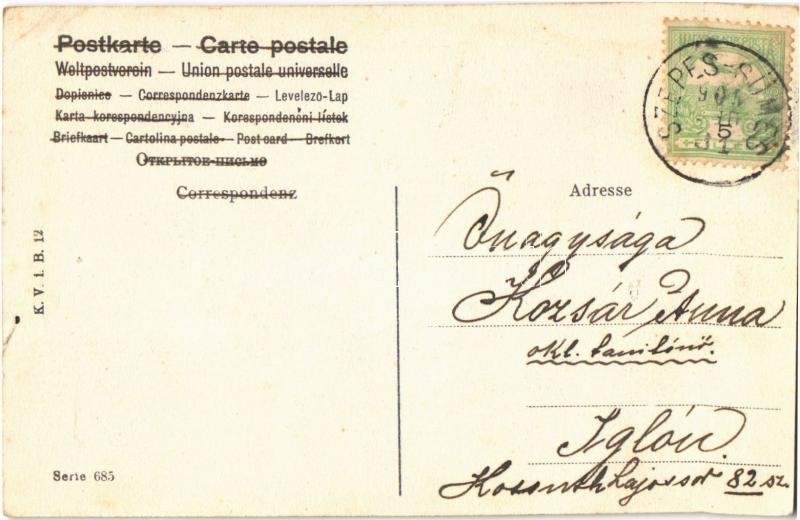 Postkarte — Carte postale
Weltpostverein — Union postale universelle
Dopisnice — Correspondenzkarte — Levelező-Lap
Karta korespondencyjna — Korespondenční lístek
Briefkaart — Cartolina postale — Post card — Brefkort
Открытое письмо
Correspondenz
SZEPES-SÜMEG
5
Adresse
Őnagysága
Kozsár Anna
okl. tanitónő.
Iglón.
Kossuth Lajos sor 82 sz.
K. V. i. B. 12
Serie 685